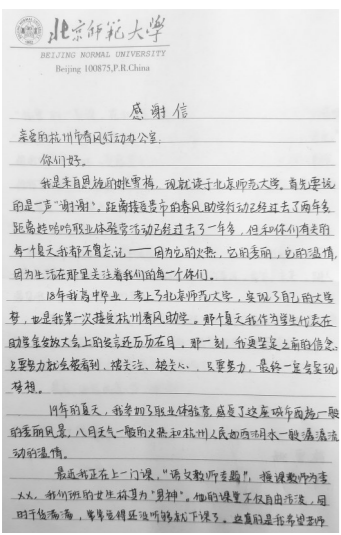 北京师范大学
BEIJING NORMAL UNIVERSITY
Beijing 100875,P.R.China
感谢信
亲爱的杭州市春风行动办公室:
你们好。
我是来自恩施的姚雪梅,现就读于北京师范大学。首先要说
的是一声“谢谢”。距离接受贵市的春风助学行动已经过去了两年多
距离娃哈哈职业体验营活动已经过去了一年多,但和你们有关的
每一个夏天我都不曾忘记——因为它的火热,它的美丽,它的温情,
因为生活在那里关注着我们的每一个你们。
18年我高中毕业,考上了北京师范大学,实现了自己的大学
梦,也是我第一次接受杭州春风助学。那个夏天我作为学生代表在
助学金发放大会上的发言还历历在目。那一刻,我更坚定之前的信念:
只要努力就会被看到,被关注,被关心,只要努力,最终一定会实现
梦想。
19年的夏天,我参加了职业体验营,感受了这座城市画卷一般
的美丽风景,八月天气一般的火热和杭州人民如西湖水一般潺潺流
动的温情。
最近我正在上一门课,“语文教师专题”,授课教师为李
XX,我们班的女生称其为“男神”。他的课堂不仅自由活泼,同
时干货满满,常常觉得还没听够就下课了。